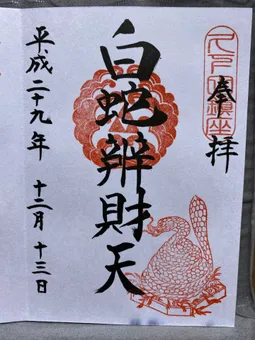 鎮座
奉拝
白蛇辨財天
平成二十九年 十二月十三日